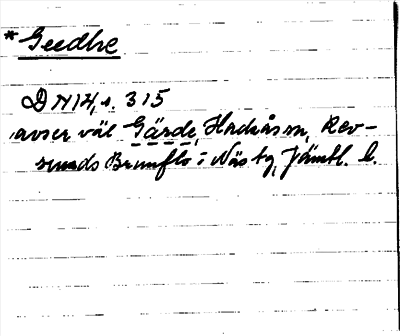 *Geedhe
DN 14, s. 315
avser väl Gärde, Hackås sn, Rev-
sunds Brunflo i Näs tg, Jämtl. l.